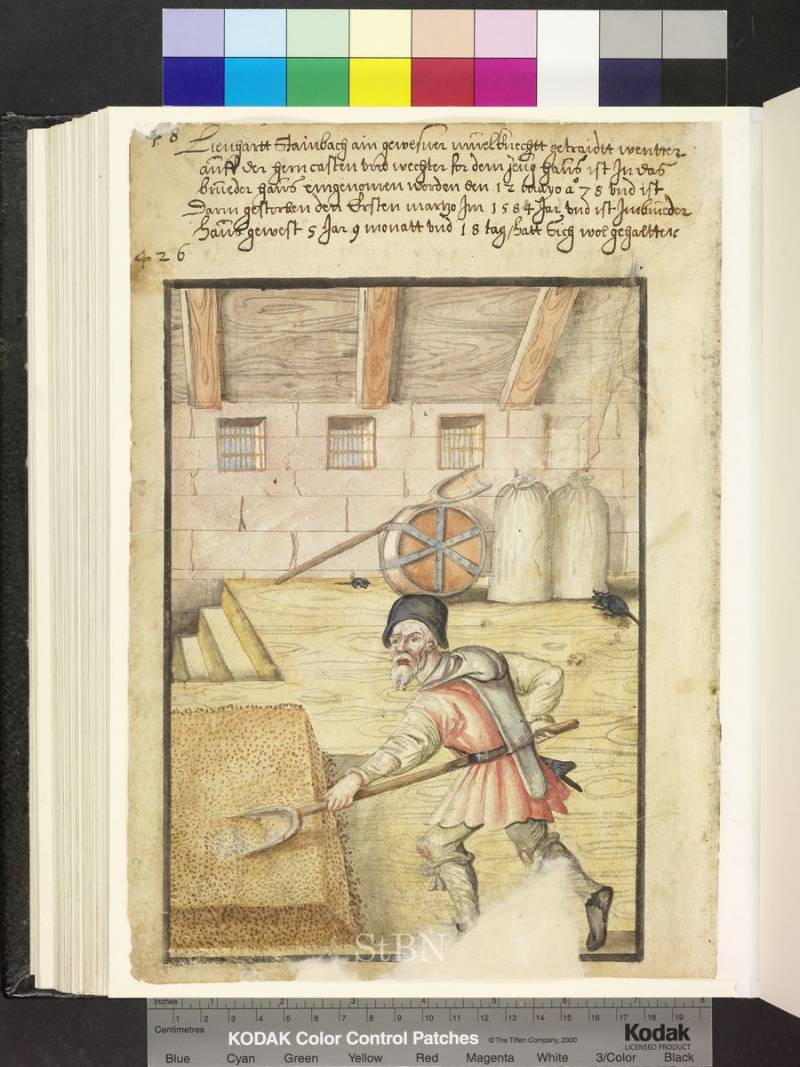 48
Lienhartt Stainbach ain gewesner müelknechtt getraidtt wentter
auff der hern casten vnd wechter for dem zeug hauß ist In das
brüeder hauß eingenomen worden den 12 mayo a° 78 vnd ist
Darin gestorben den Ersten marzo Im 1584 Jar vnd ist Im brüeder
hauß gewest 5 Jar 9 monatt vnd 18 tag / hatt sich wol gehaltten
426
StBN
Inches 1 2 3 4 5 6 7 8
Centimetres 1 2 3 4 5 6 7 8 9 10 11 12 13 14 15 16 17 18 19
KODAK Color Control Patches © The Tiffen Company, 2000 Kodak
LICENSED PRODUCT
Blue Cyan Green Yellow Red Magenta White 3/Color Black